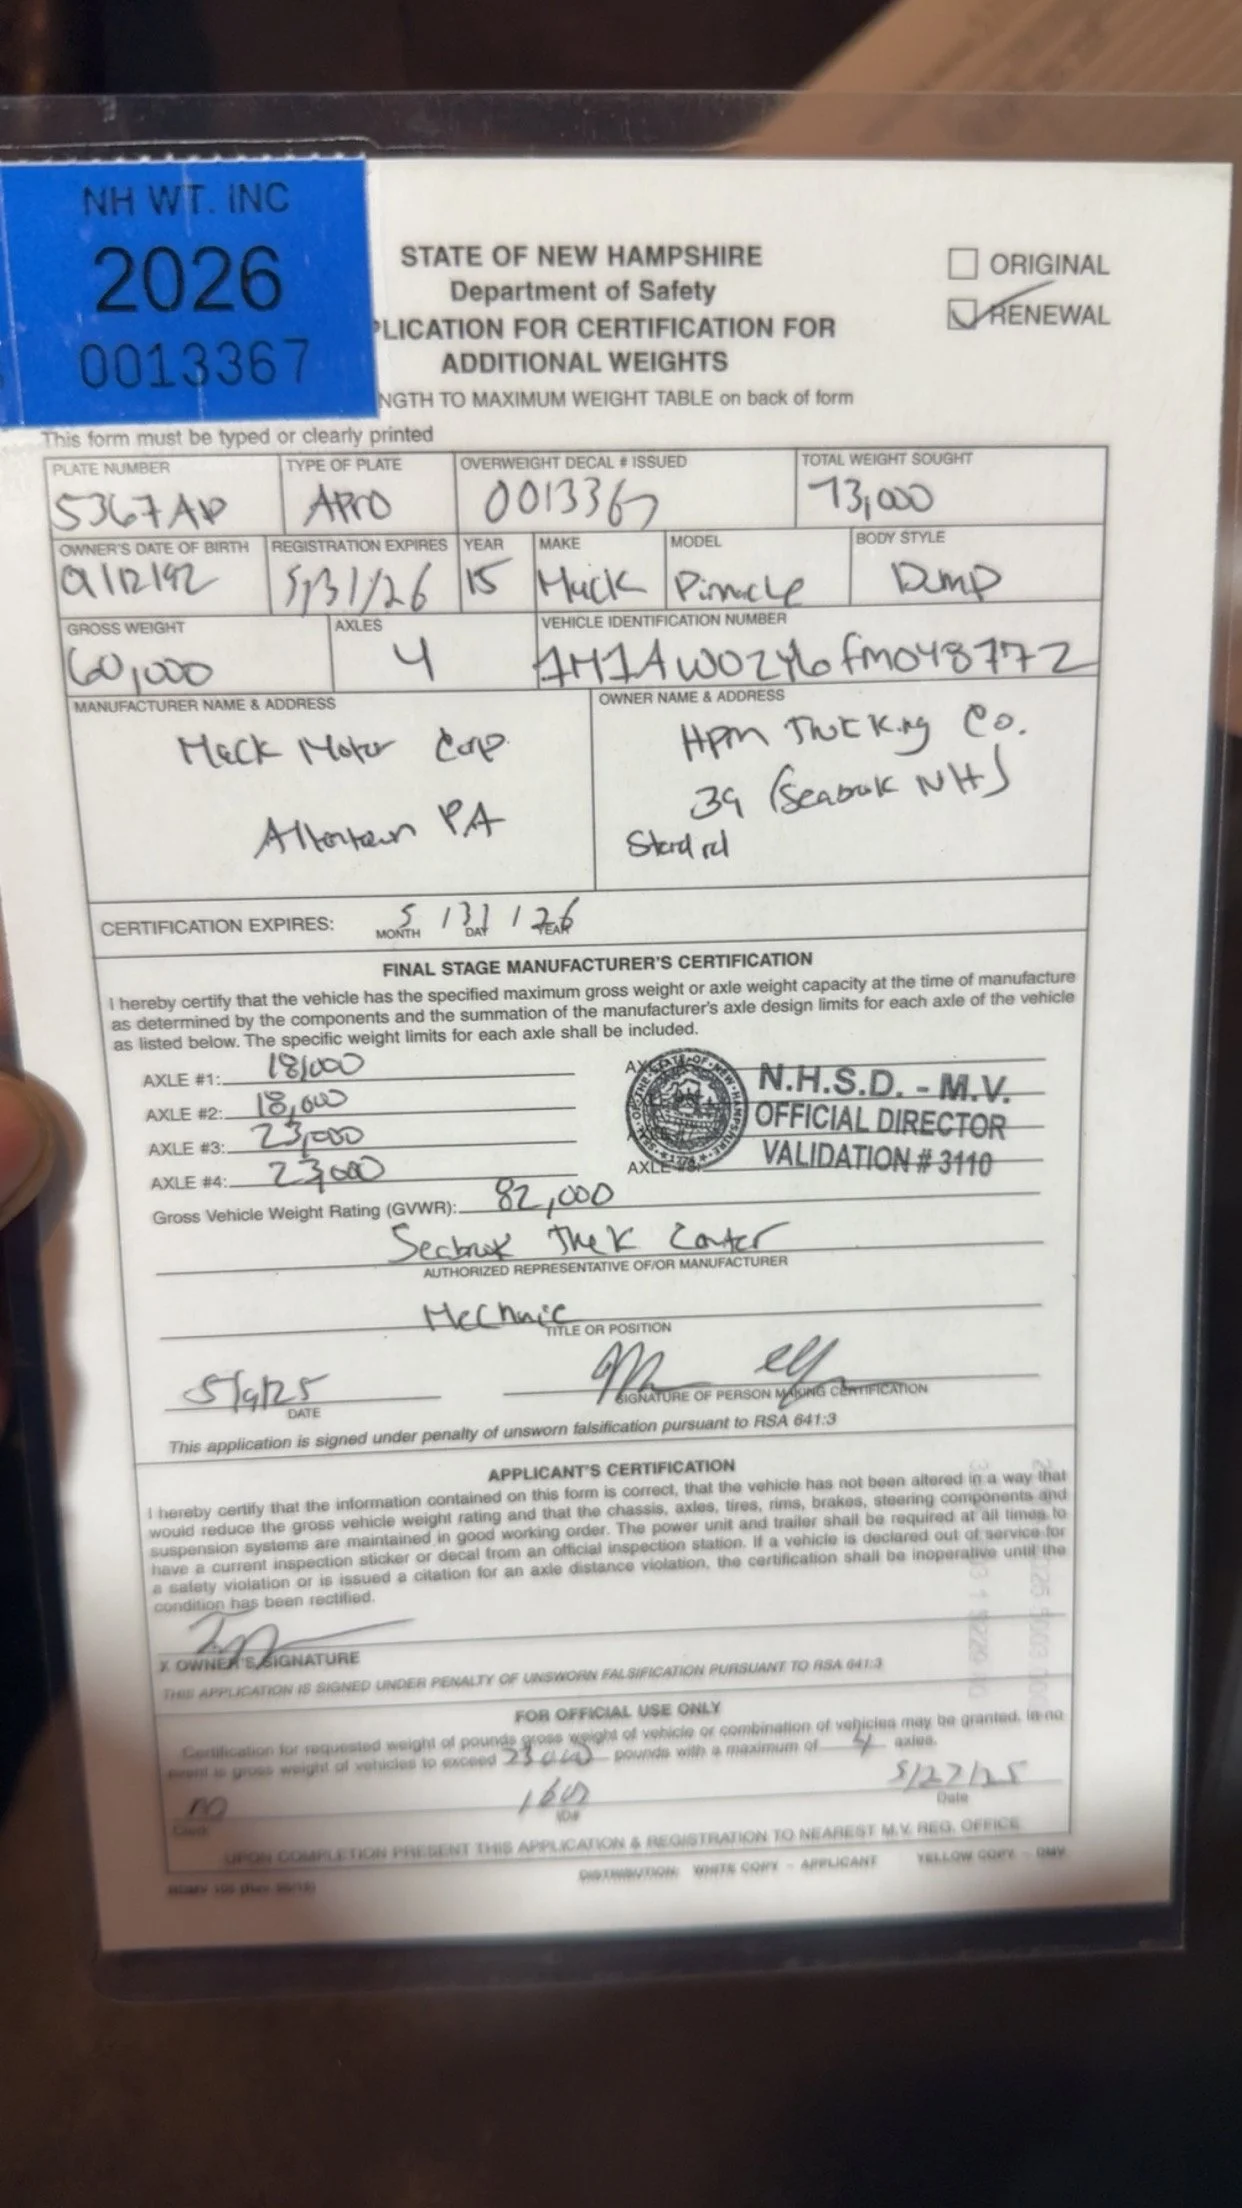 NH WT. INC
2026
0013367
STATE OF NEW HAMPSHIRE
Department of Safety
PLICATION FOR CERTIFICATION FOR
ADDITIONAL WEIGHTS
NGTH TO MAXIMUM WEIGHT TABLE on back of form
ORIGINAL
RENEWAL
This form must be typed or clearly printed
PLATE NUMBER TYPE OF PLATE OVERWEIGHT DECAL # ISSUED TOTAL WEIGHT SOUGHT
5367AP APRO 0013367 73,000
OWNER'S DATE OF BIRTH REGISTRATION EXPIRES YEAR MAKE MODEL BODY STYLE
9/12/92 5/31/26 15 Mack Pinnacle Dump
GROSS WEIGHT AXLES VEHICLE IDENTIFICATION NUMBER
60,000 4 1M1AW02Y6FM048772
MANUFACTURER NAME & ADDRESS OWNER NAME & ADDRESS
Mack Motor Corp. Hpm Trucking Co.
39 (Seabrook NH)
Allentown PA
CERTIFICATION EXPIRES: 5 / 31 / 26
MONTH DAY YEAR
FINAL STAGE MANUFACTURER'S CERTIFICATION
I hereby certify that the vehicle has the specified maximum gross weight or axle weight capacity at the time of manufacture
as determined by the components and the summation of the manufacturer's axle design limits for each axle of the vehicle
as listed below. The specific weight limits for each axle shall be included.
AXLE #1: 18,000
AXLE #2: 18,000
AXLE #3: 23,000
AXLE #4: 23,000
N.H.S.D. - M.V.
OFFICIAL DIRECTOR
VALIDATION # 3110
Gross Vehicle Weight Rating (GVWR): 82,000
Seabrook Truck Center
AUTHORIZED REPRESENTATIVE OF/OR MANUFACTURER
Mechanic
TITLE OR POSITION
5/9/25
DATE SIGNATURE OF PERSON MAKING CERTIFICATION
This application is signed under penalty of unsworn falsification pursuant to RSA 641:3
APPLICANT'S CERTIFICATION
I hereby certify that the information contained on this form is correct, that the vehicle has not been altered in a way that
would reduce the gross vehicle weight rating and that the chassis, axles, tires, rims, brakes, steering components and
suspension systems are maintained in good working order. The power unit and trailer shall be required at all times to
have a current inspection sticker or decal from an official inspection station. If a vehicle is declared out of service for
a safety violation or is issued a citation for an axle distance violation, the certification shall be inoperative until the
condition has been rectified.
X OWNER'S SIGNATURE
THIS APPLICATION IS SIGNED UNDER PENALTY OF UNSWORN FALSIFICATION PURSUANT TO RSA 641:3
FOR OFFICIAL USE ONLY
Certification for requested weight of pounds gross weight of vehicle or combination of vehicles may be granted. In no
event is gross weight of vehicles to exceed pounds with a maximum of 4 axles.
5/27/25
ID# Date
UPON COMPLETION PRESENT THIS APPLICATION & REGISTRATION TO NEAREST M.V. REG. OFFICE
DISTRIBUTION: WHITE COPY - APPLICANT YELLOW COPY - DMV